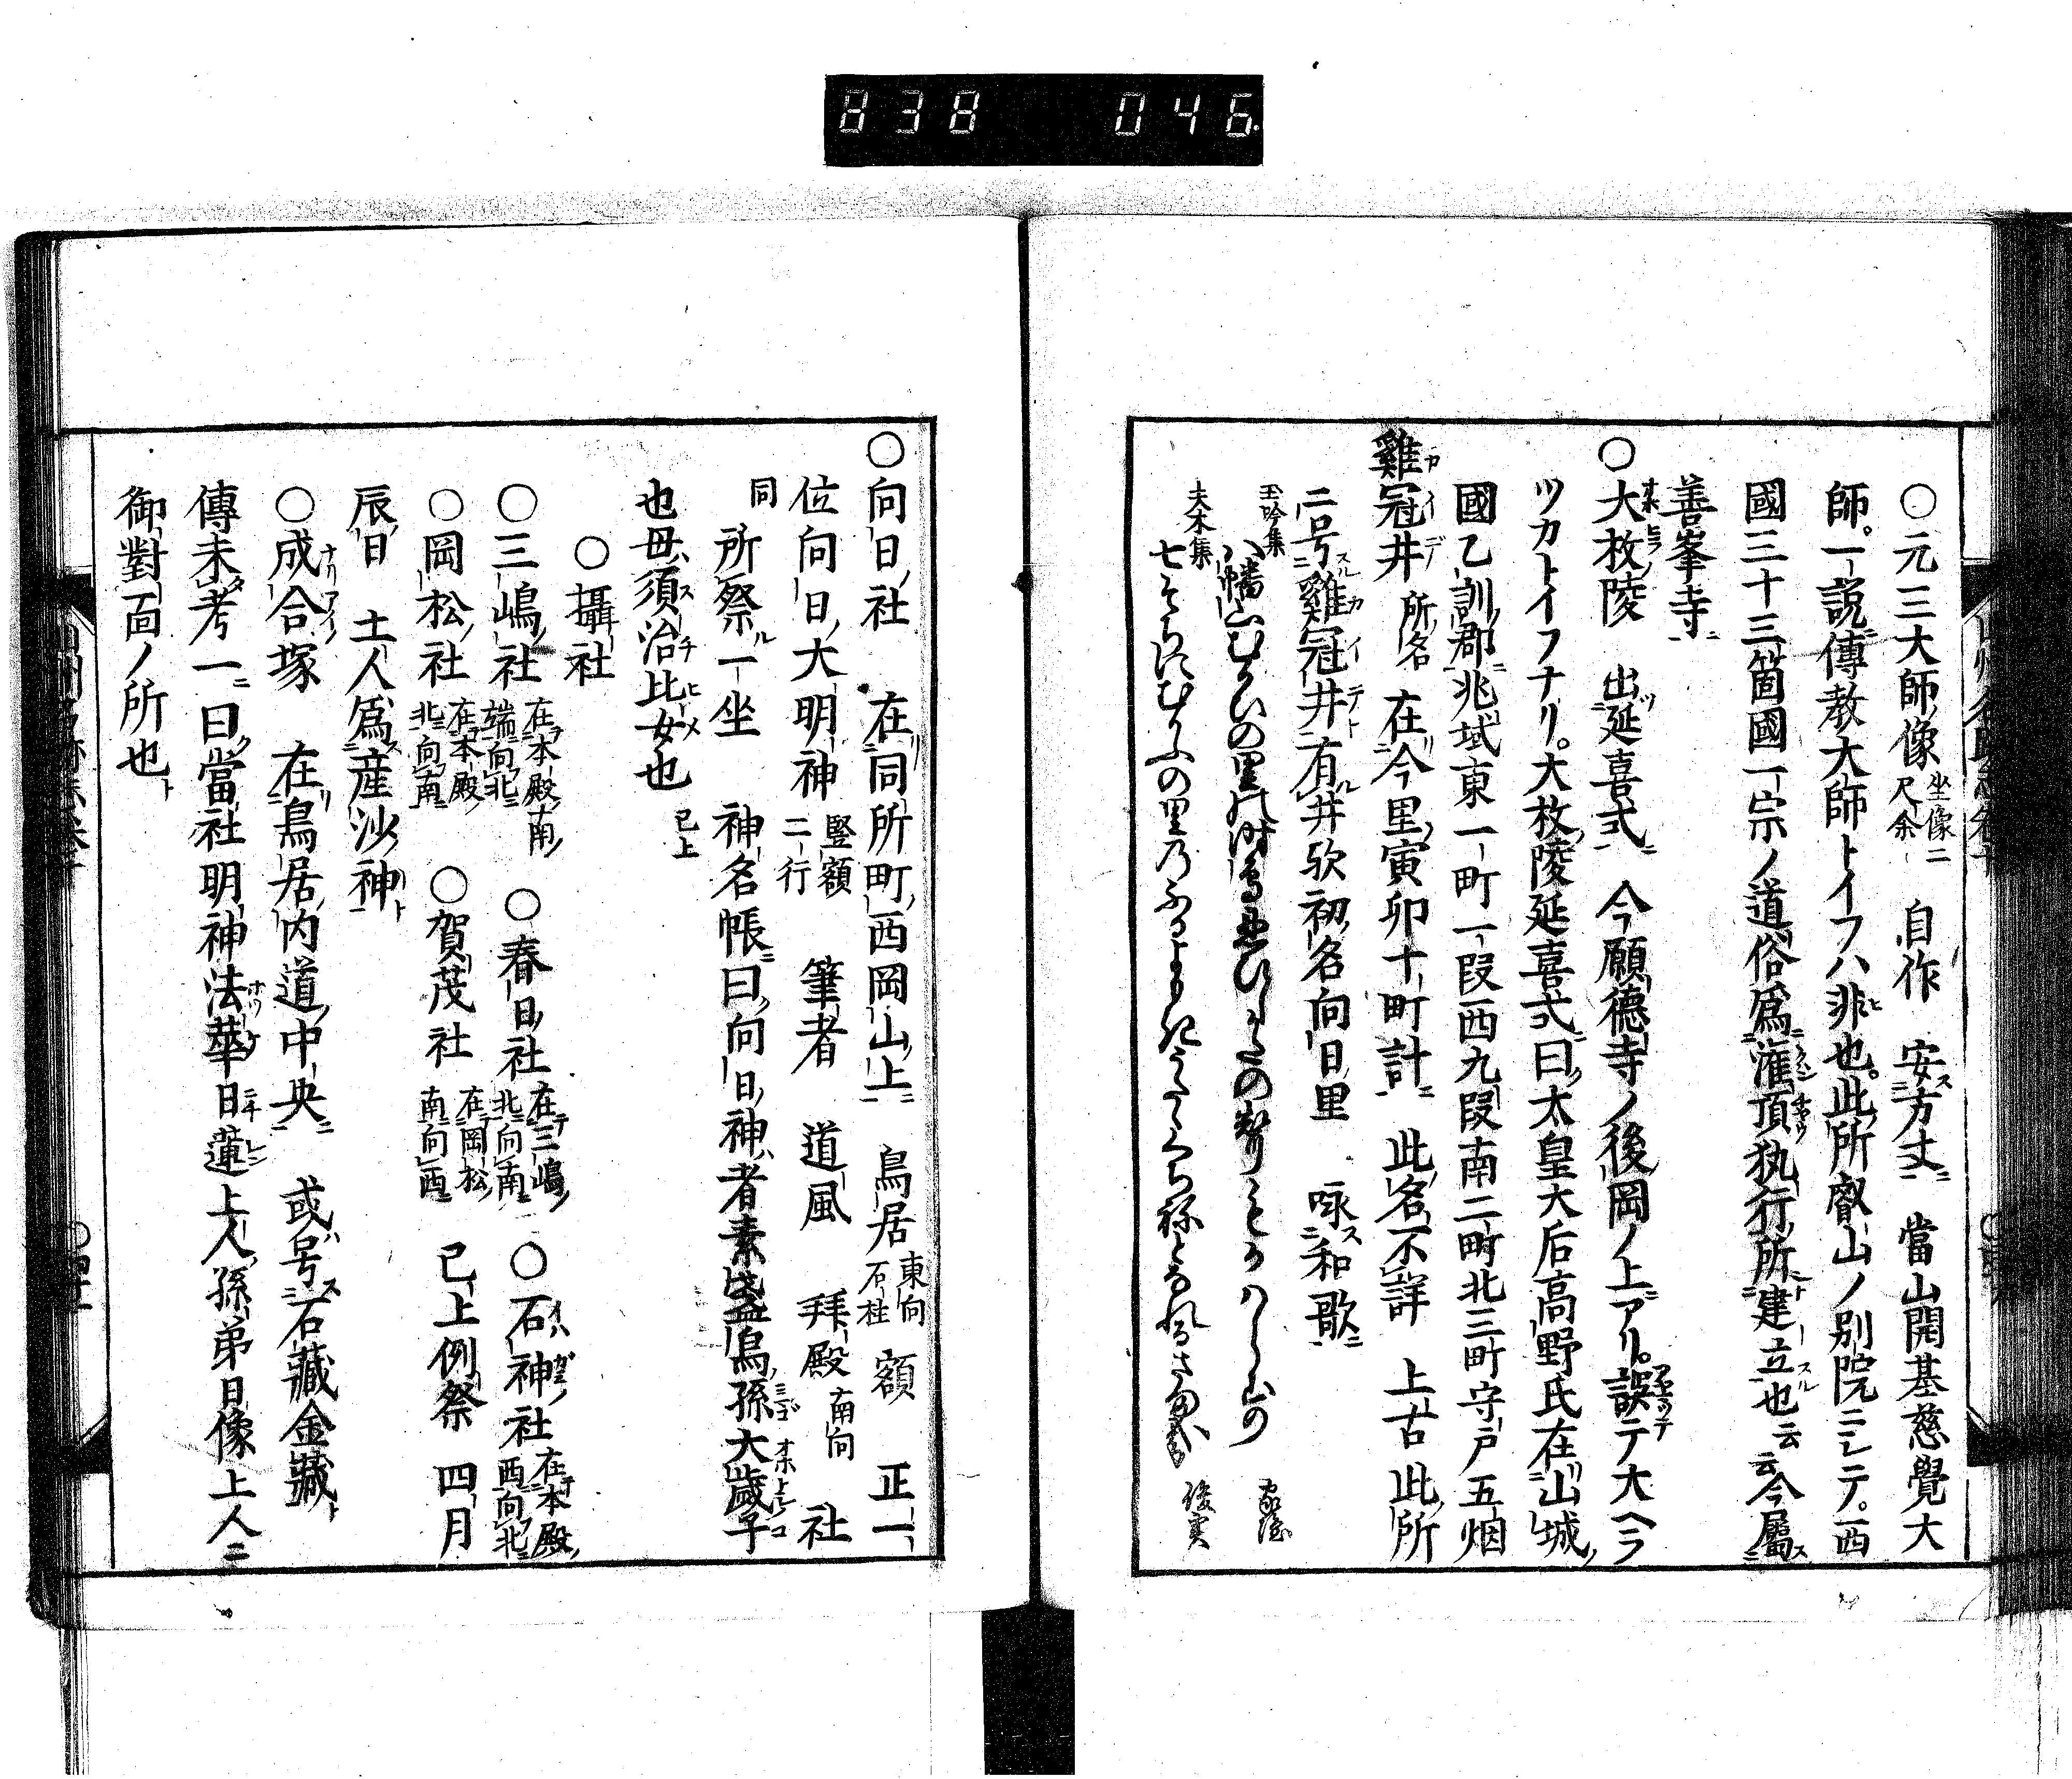 838 046
○元三大師像 坐像二尺余 自作 安方丈 當山開基慈覺大
師。一說傳教大師トイフハ非也。此所叡山ノ別院ニシテ。西
國三十三箇國一宗ノ道俗爲灌頂執行所建立也云云今屬
善峯寺
○大枚陵 出延喜式 今願德寺ノ後岡ノ上ニアリ。誤テ大ヘラ
ツカトイフナリ。大枚陵延喜式曰太皇大后高野氏在山城
國乙訓郡兆域東一町一段西九段南二町北三町守戸五烟
雞冠井 所名 在今里寅卯十町計 此名不詳 上古此所
二号雞冠井有井欤初名向日里 咏和歌
玉吟集
八幡山むかひの里の
家隆
夫木集
の里乃
俊実
○向日社 在同所町西岡山上 鳥居 東向石柱 額 正一
位向日大明神 竪額二行 筆者 道風 拜殿 南向 社
同 所祭一坐 神名帳曰向日神者素盞烏孫大歲子
也母須治比女也 已上
○攝社
○三嶋社 在本殿南端向北 ○春日社 在三嶋北向南 ○石神社 在本殿西向北
○岡松社 在本殿北向南 ○賀茂社 在岡松南向西 已上例祭 四月
辰日 土人爲産沙神
○成合塚 在鳥居内道中央 或号石藏金藏
傳未考一曰當社明神法華日蓮上人孫弟日像上人ニ
御對面ノ所也